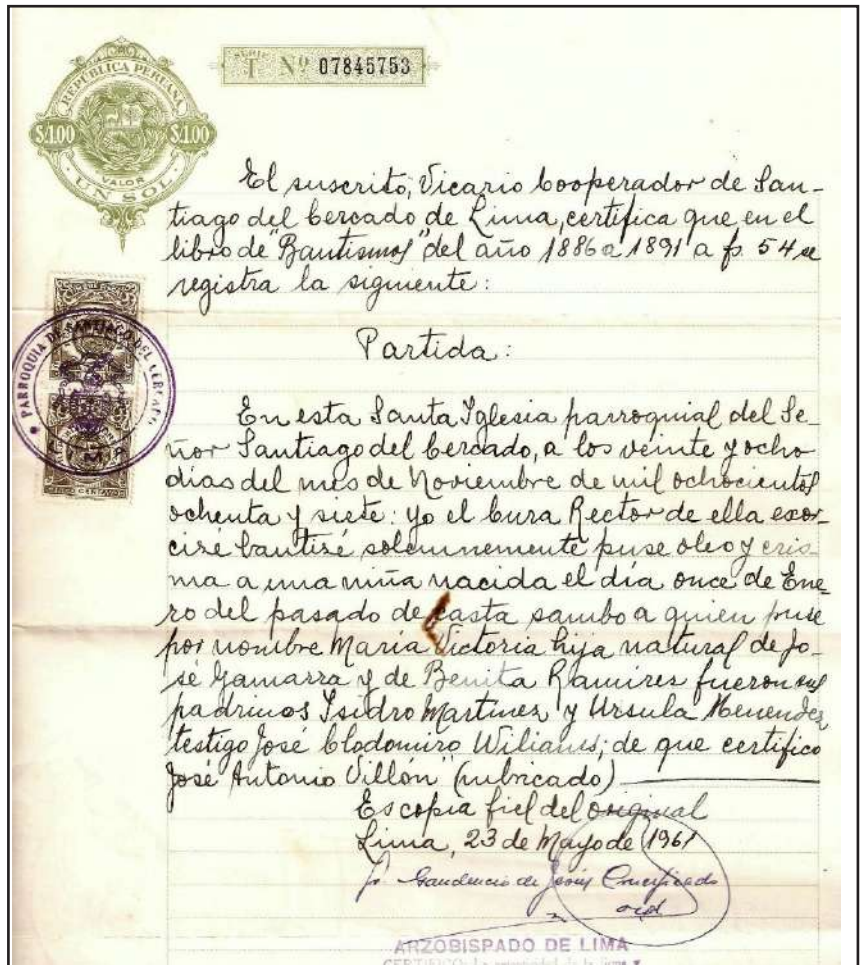 REPÚBLICA PERUANA
S/.1.00 S/.1.00
VALOR
UN SOL
SERIE
T Nº 07845753
El suscrito, Vicario Cooperador de San-
tiago del Cercado de Lima, certifica que en el
libro de "Bautismos" del año 1886 a 1891 a f. 54 se
registra la siguiente:
Partida:
PARROQUIA DE SANTIAGO DEL CERCADO
LIMA
En esta Santa Yglesia parroquial del Se-
ñor Santiago del Cercado, a los veinte y ocho
dias del mes de Noviembre de mil ochocientos
ochenta y siete: yo el Cura Rector de ella exor-
cizé bautizé solemnemente puse oleo y cris-
ma a una niña nacida el día once de Ene-
ro del pasado de casta sambo a quien puse
por nombre María Victoria hija natural de Jo-
sé Gamarra y de Benita Ramires fueron sus
padrinos Ysidro Martinez y Ursula Menendez
testigo José Clodomiro Wilianes; de que certifico
José Antonio Villón" (rubricado)
Es copia fiel del original
Lima, 23 de Mayo de 1961
fr. Gaudencio de Jesús Crucificado
ocd
ARZOBISPADO DE LIMA